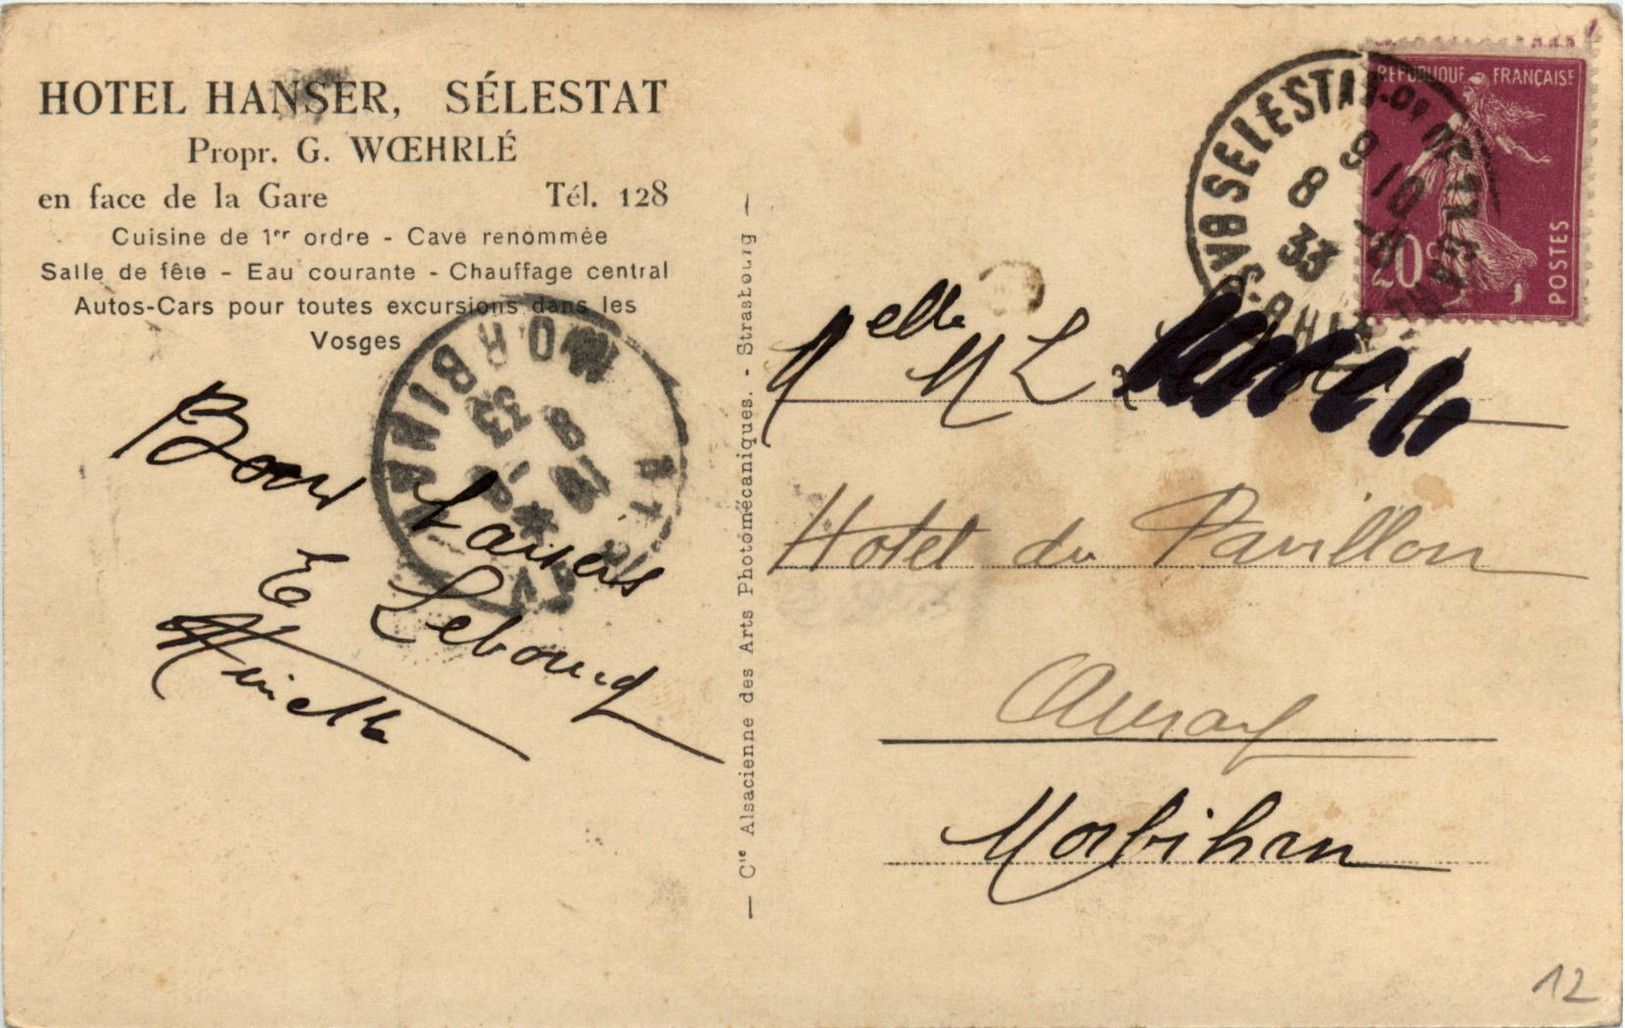 HOTEL HANSER, SÉLESTAT
Propr. G. WŒHRLÉ
en face de la Gare Tél. 128
Cuisine de 1er ordre - Cave renommée
Salle de fête - Eau courante - Chauffage central
Autos-Cars pour toutes excursions dans les
Vosges
MORBIHAN
33
8
Bons baisers
E Lebourg
— Cie Alsacienne des Arts Photomécaniques. - Strasbourg —
SELESTAT
BAS-RHIN
9 10
8
33
REPUBLIQUE FRANÇAISE
20c
POSTES
Melle M L
Hotel du Pavillon
Auray
Morbihan
12